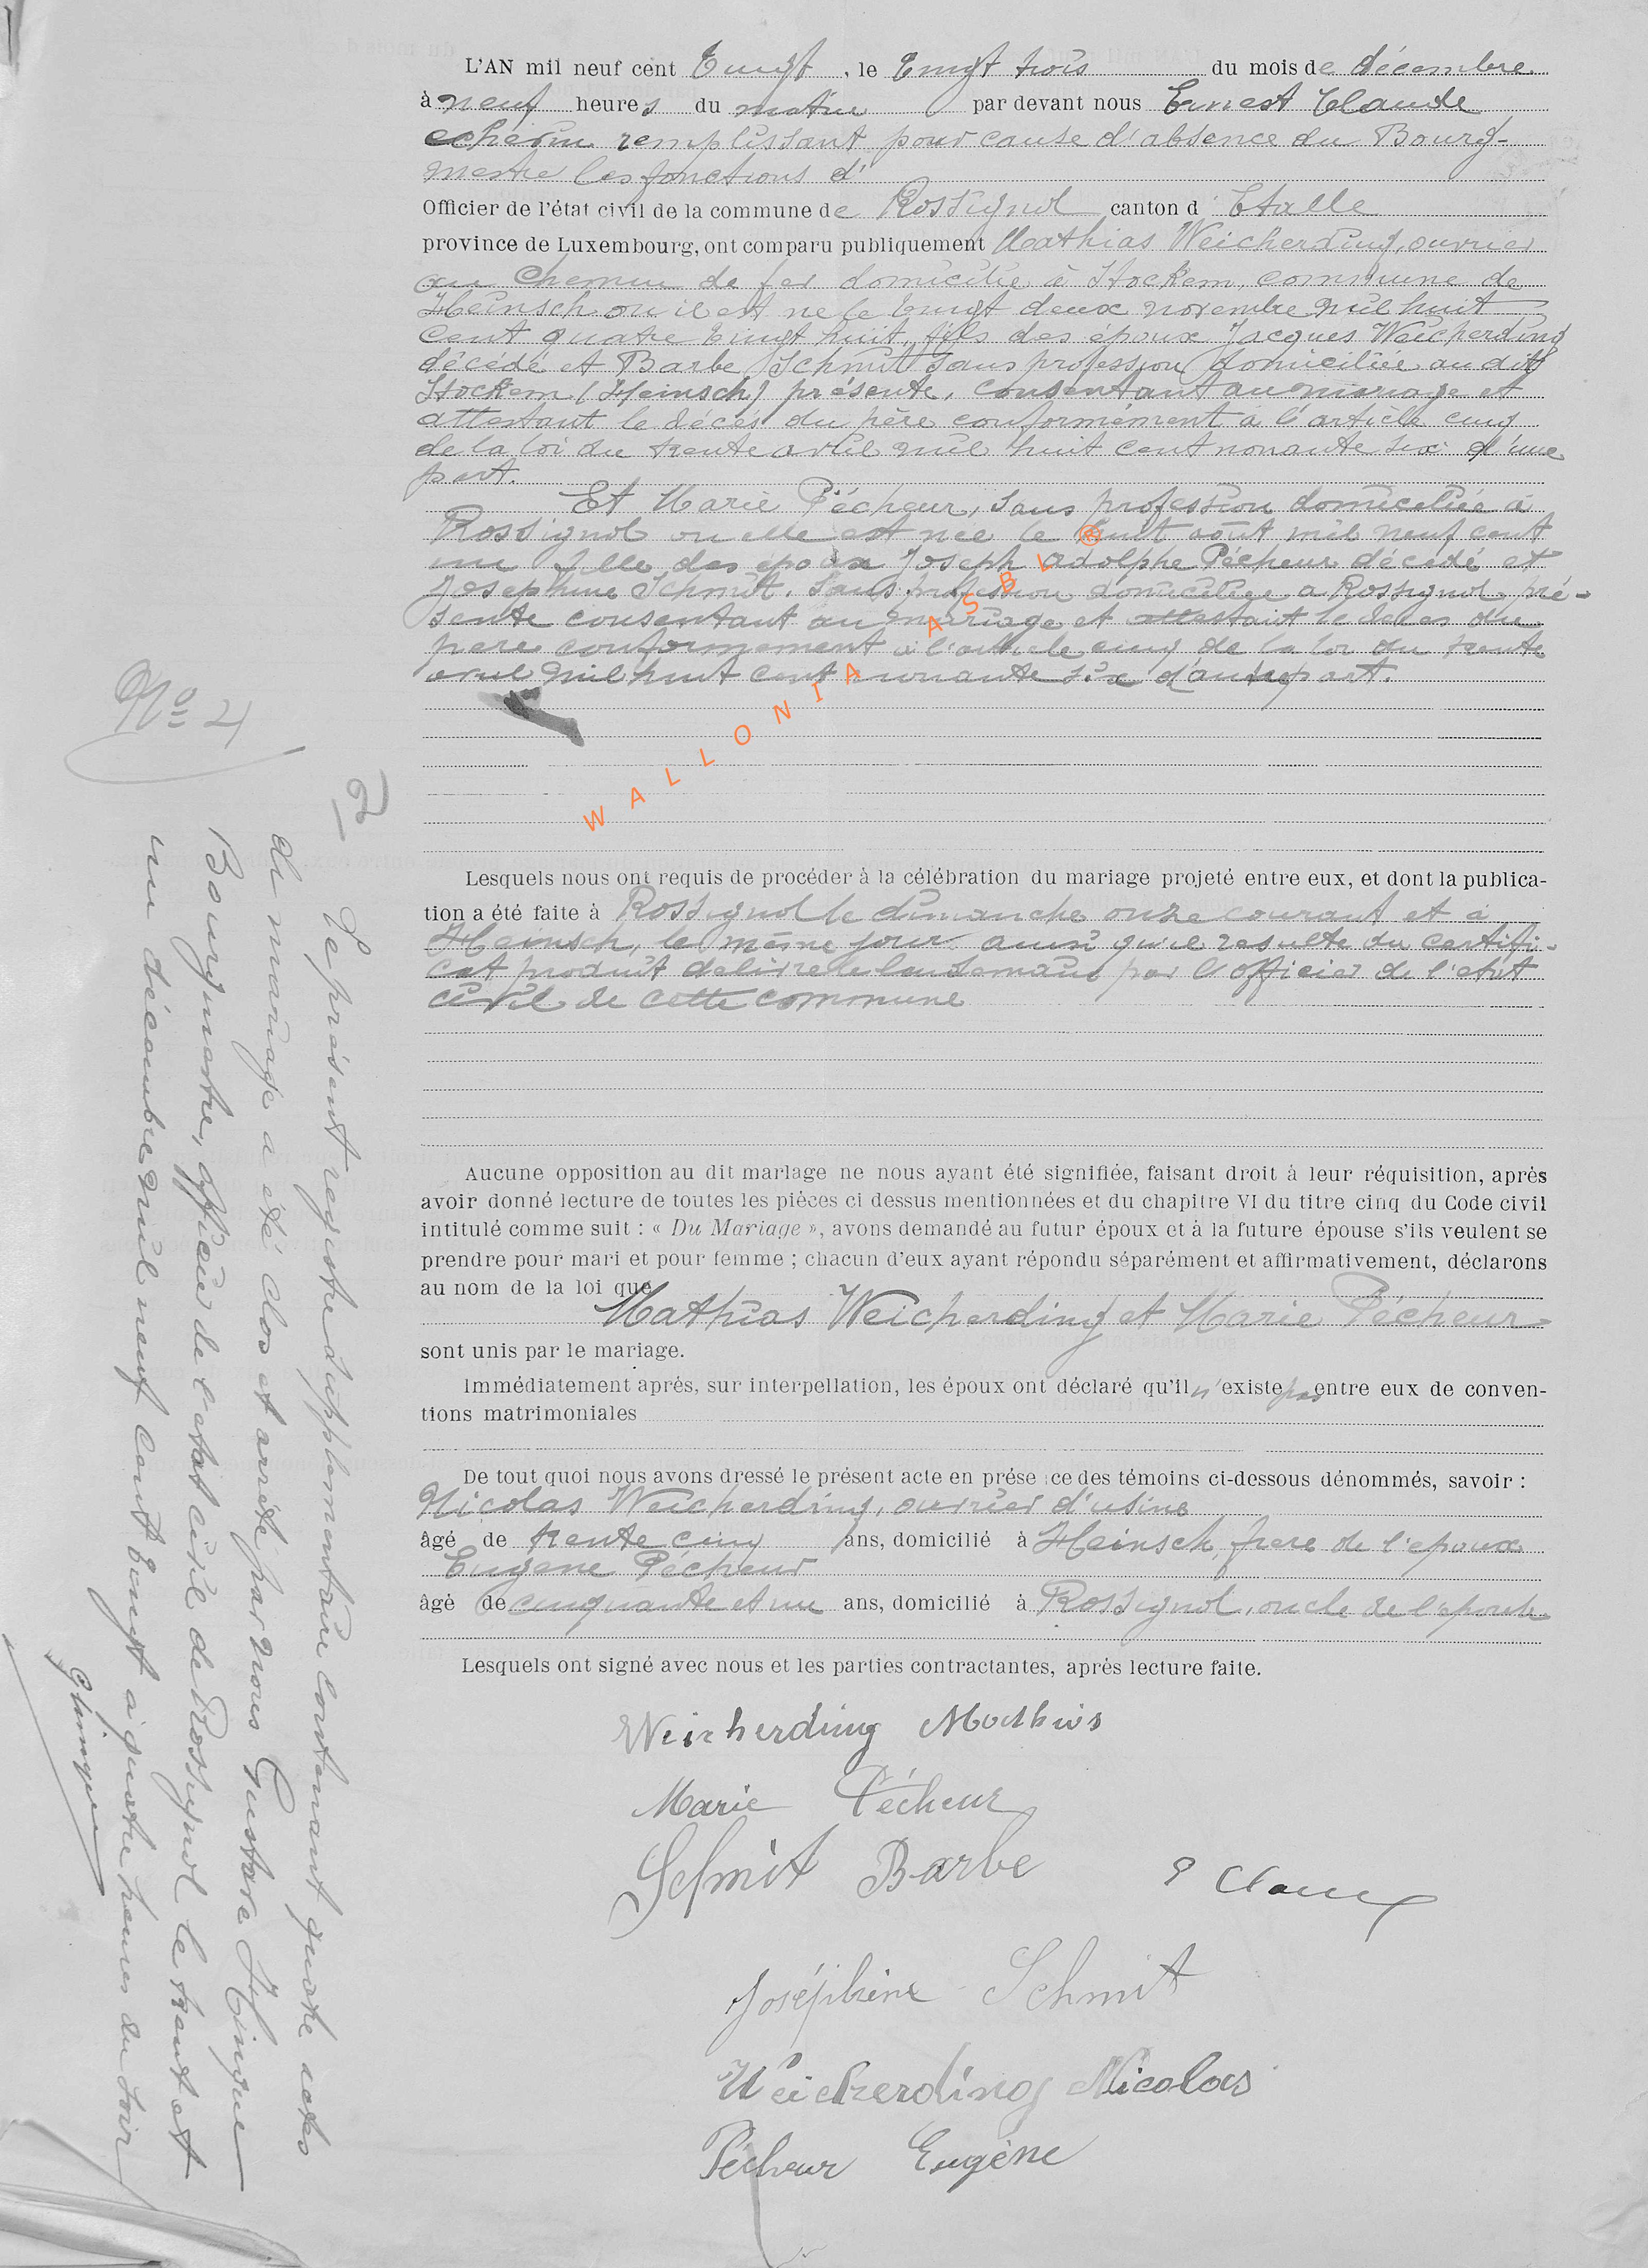 L'AN mil neuf cent vingt, le vingt trois du mois de décembre
à neuf heures du matin par devant nous Ernest Claude
echevin remplissant pour cause d'absence du Bourg-
mestre les fonctions d'
Officier de l'état civil de la commune de Rossignol canton d'Etalle
province de Luxembourg, ont comparu publiquement Mathias Weicherding, ouvrier
au Chemin de fer domicilié à Stockem, commune de
Heinsch ou il est né le vingt deux novembre mil huit
cent quatre vingt huit, fils des époux Jacques Weicherding
décédé et Barbe Schmit sans profession domiciliée au dit
Stockem (Heinsch) présente, consentant au mariage et
attestant le décés du père conformément à l'article cinq
de la loi du trente avril mil huit cent nonante six d'une
part.
Et Marie Pécheur, sans profession domiciliée à
Rossignol ou elle est née le huit août mil neuf cent
un fille des époux Joseph Adolphe Pécheur décédé et
Joséphine Schmit, sans profession domiciliée a Rossignol, pré-
sente consentant au mariage et attestant le déces du
père conformément à l'article cinq de la loi du trente
avril mil huit cent nonante six d'autre part.
WALLONIA ASBL ®
Nº 4
Lesquels nous ont requis de procéder à la célébration du mariage projeté entre eux, et dont la publica-
tion a été faite à Rossignol le dimanche onze courant et à
Heinsch, le même jour ainsi qu'il résulte du certifi-
cat produit delivré le lendemain par l'officier de l'etat
civil de cette commune
Aucune opposition au dit mariage ne nous ayant été signifiée, faisant droit à leur réquisition, après
avoir donné lecture de toutes les pièces ci dessus mentionnées et du chapitre VI du titre cinq du Code civil
intitulé comme suit : « Du Mariage », avons demandé au futur époux et à la future épouse s'ils veulent se
prendre pour mari et pour femme ; chacun d'eux ayant répondu séparément et affirmativement, déclarons
au nom de la loi que
Mathias Weicherding et Marie Pécheur
sont unis par le mariage.
Immédiatement après, sur interpellation, les époux ont déclaré qu'il n'existe pas entre eux de conven-
tions matrimoniales
De tout quoi nous avons dressé le présent acte en prése ce des témoins ci-dessous dénommés, savoir :
Nicolas Weicherding, ouvrier d'usine
âgé de trente cinq ans, domicilié à Heinsch, frere de l'epoux
Eugene Pécheur
âgé de cinquante et un ans, domicilié à Rossignol, oncle de l'epouse
Lesquels ont signé avec nous et les parties contractantes, après lecture faite.
Weicherding Mathias
Marie Pécheur
Schmit Barbe
E Claude
Joséphine Schmit
Weicherding Nicolas
Pécheur Eugène
Le présent registre supplémentaire contenant quatre actes
de mariage a été clos et arrêté par nous Gustave Hinque
Bourgmestre, officier de l'etat civil de Rossignol le trente et
un décembre mil neuf cent vingt à quatre heures du soir